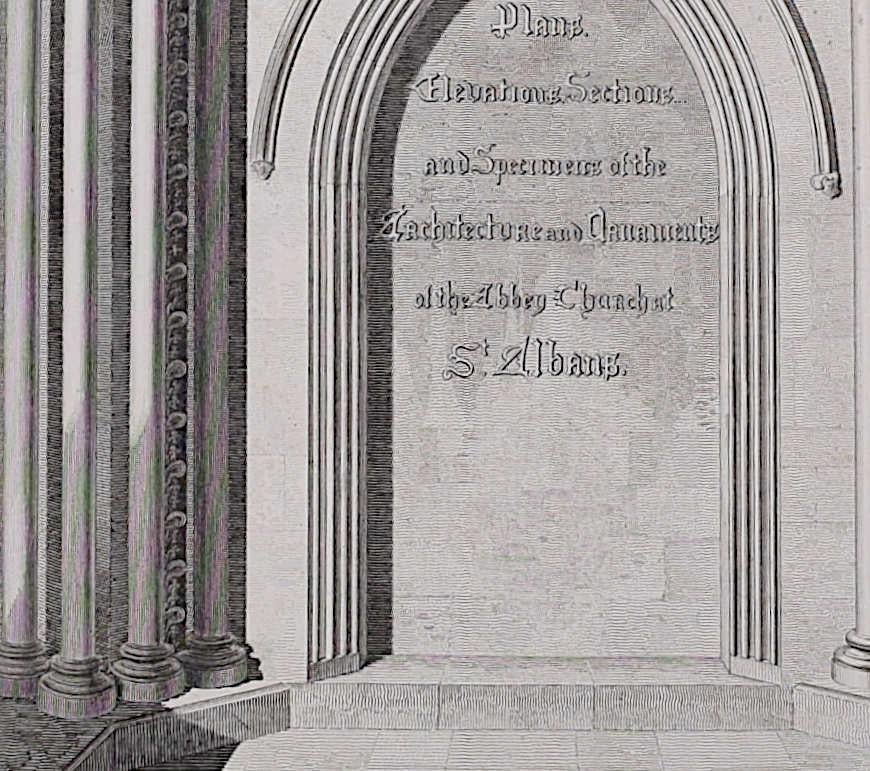 Plans.
Elevations, Sections...
and Specimens of the
Architecture and Ornaments
of the Abbey Church at
St. Albans.